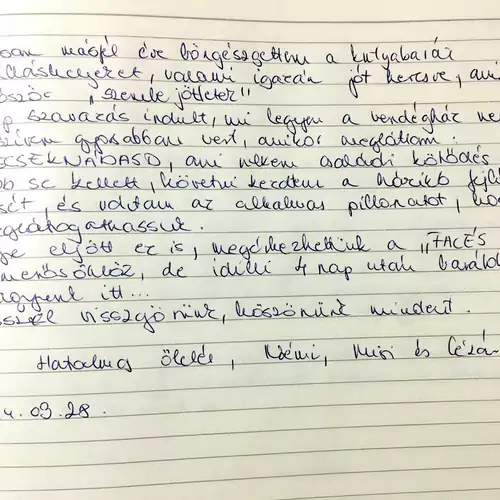 másfél éve böngészgettem a kutyabarát
valami igazán jót keresve, ami
először "szemle jöttetet"
szavazás indult, mi legyen a vendégház ne
szívem gyorsabban vert, amikor megláttam:
CSEKNÁDASD, ami nekem családi kötődés
se kellett, követni kezdtem a házikó fejl
sét, és vártam az alkalmas pillanatot, ho
eljött ez is, megérkezhettünk a "FACÉS
de idilli 4 nap után barátok
itt...
visszajövünk, köszönünk mindent.
Hatalmas ölelés, Noémi, Misi és Cézár
4.03.28.